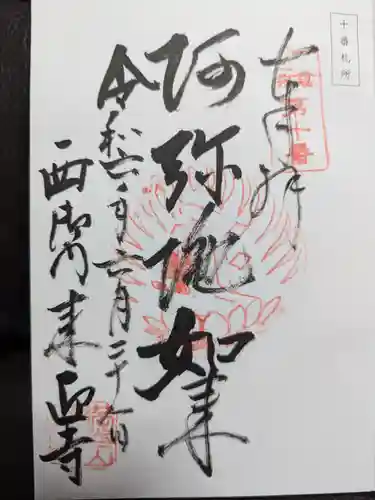 十番札所
奉拝
阿弥陀如来
令和六年六月二十一日
西御門来迎寺